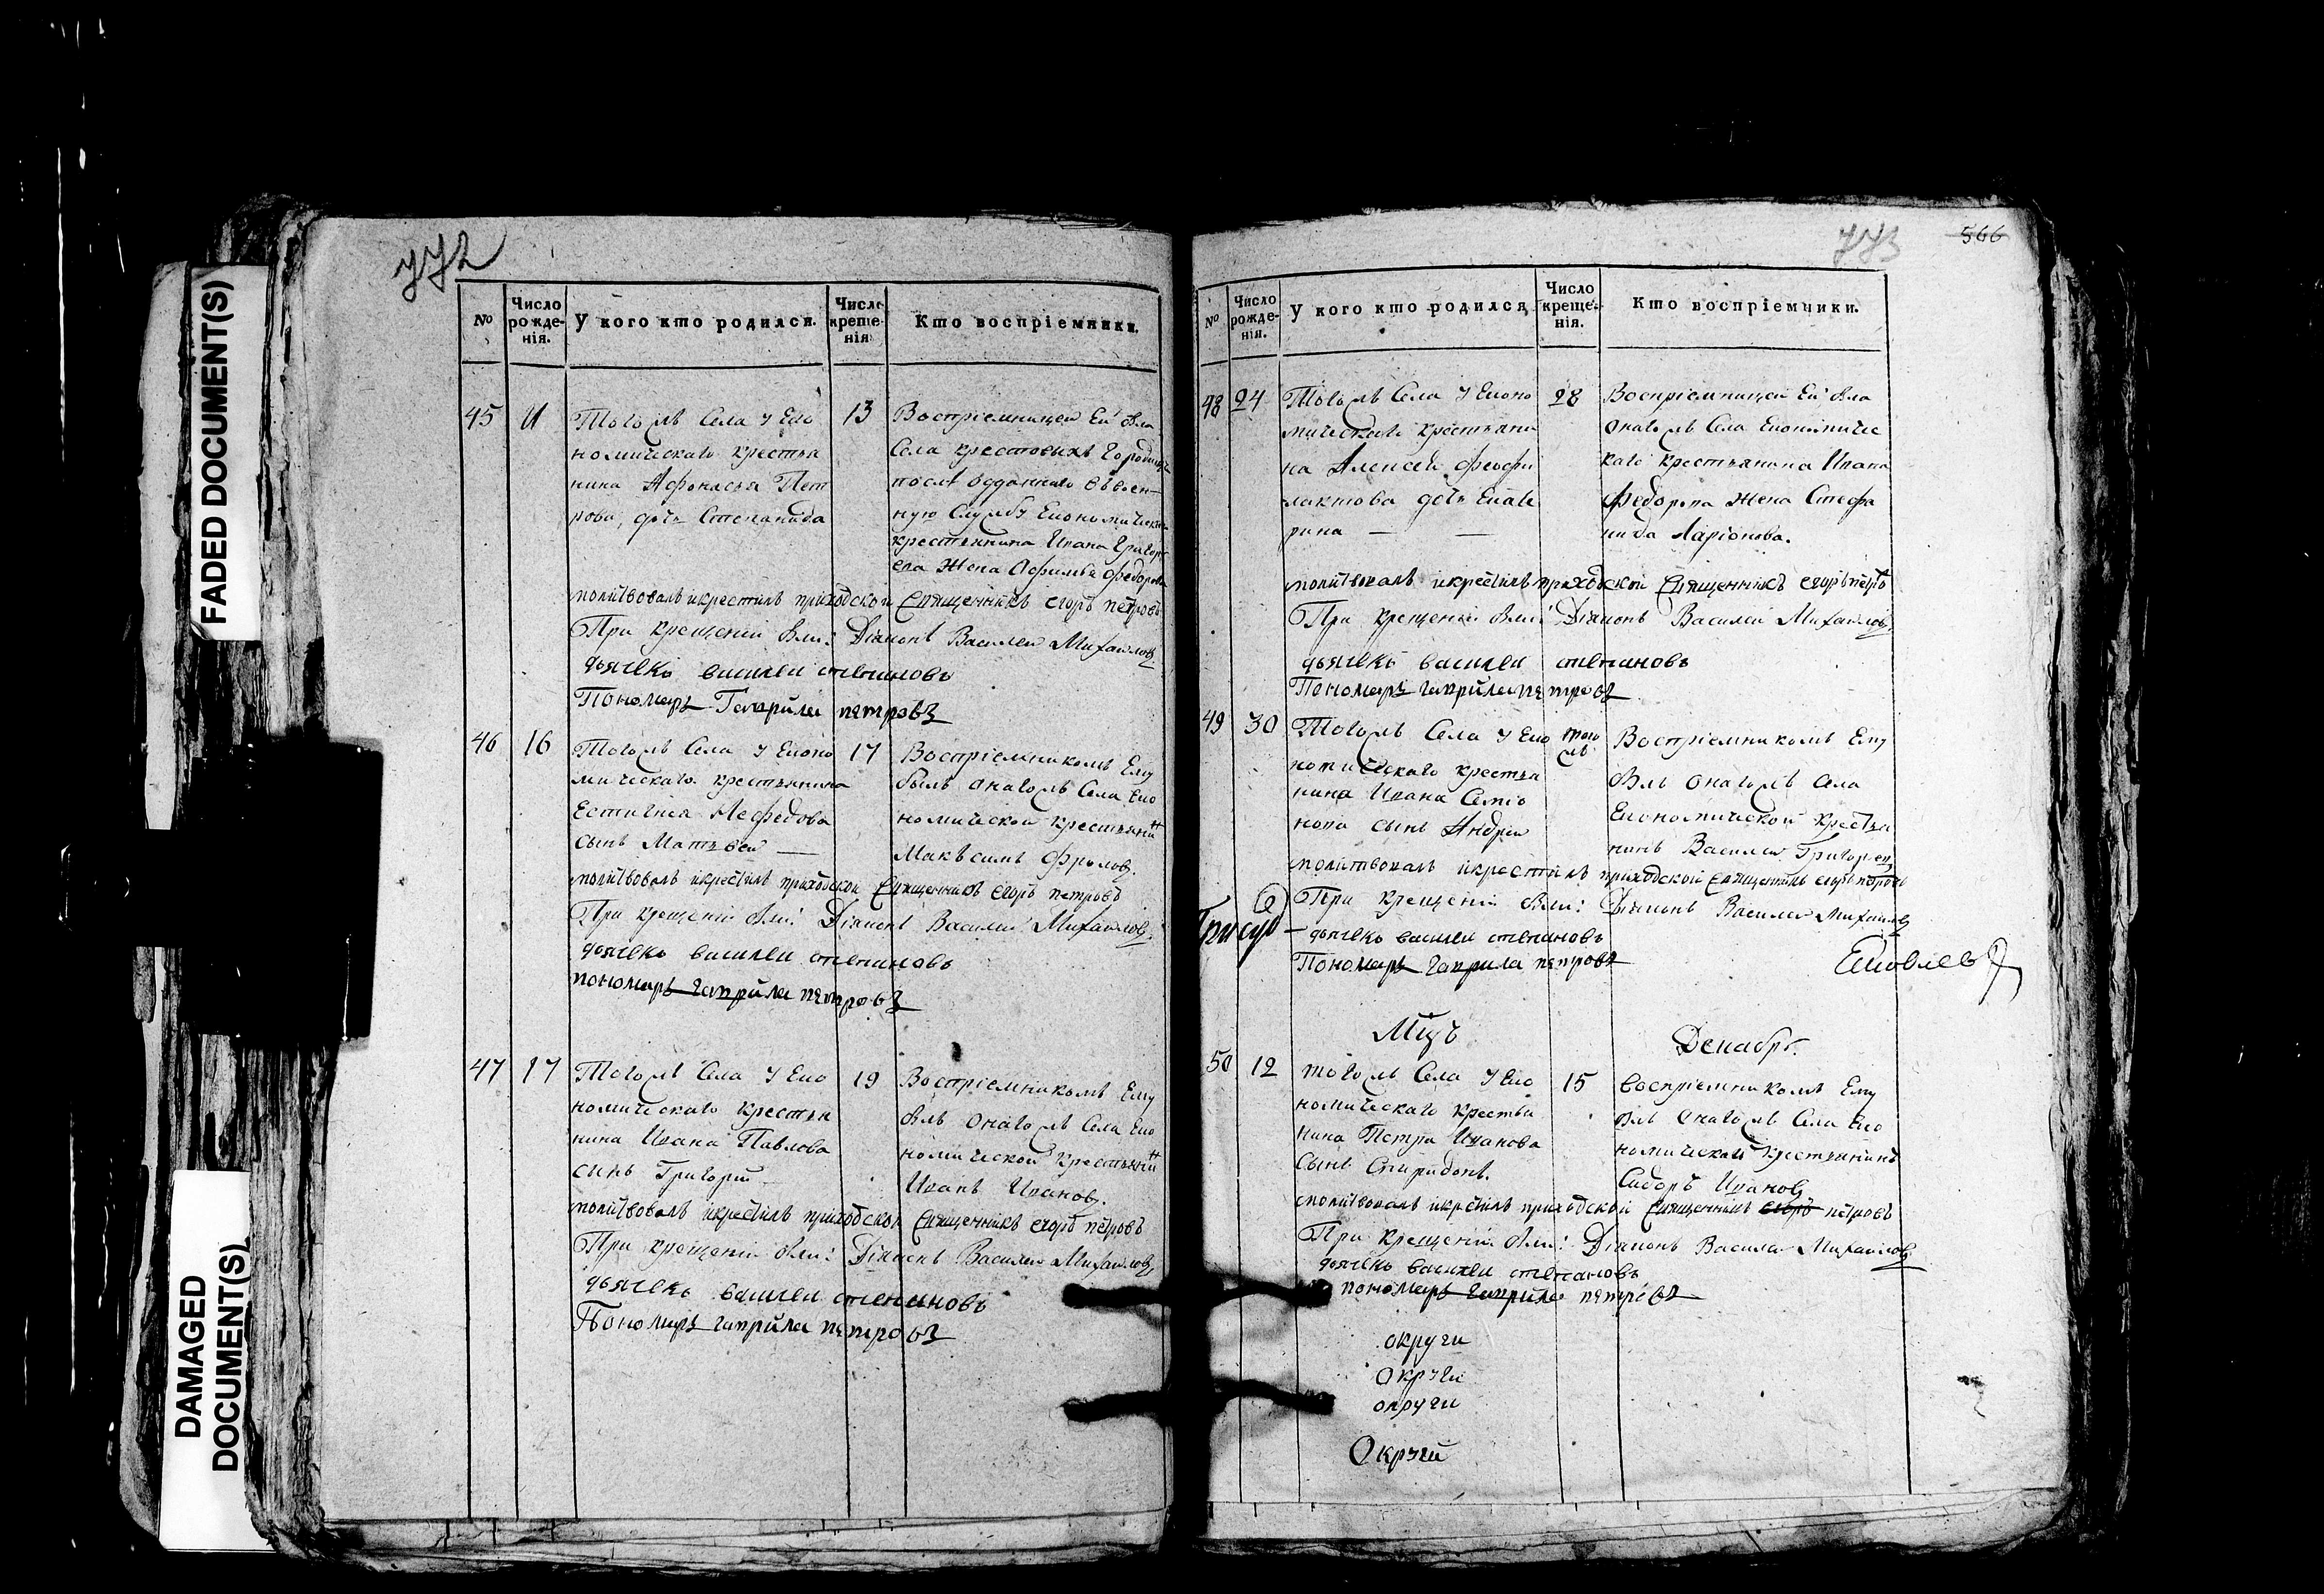 FADED DOCUMENT(S)
DAMAGED
DOCUMENT(S)
772
№
Число рожденія.
У кого кто родился.
Число крещенія
Кто воспріемники.
45
11
Тогожъ Села У Еко
номическаго крестья
нина Афонасья Пет
рова, дочь Степанида
13
Воспріемницей Ей была
Села крестовыхъ Городищъ
послѣ отданнаго въ воен-
ную Службу Економическаго
крестьянина Ивана Григорь
ева Жена Афимья Федорова
молитвовалъ икрестилъ приходской Священникъ егоръ петровъ
При крещеніи были: Діяконъ Василей Михайловъ
дьячекъ василеи степановъ
Пономарь Гаврила петровъ
46
16
Тогожъ Села У Еконо
мическаго крестьянина
Естигнея Нефедова
сынъ Матвей —
17
Воспріемникомъ Ему
былъ Онагожъ Села Еко
номической крестьянинъ
Максимъ Фроловъ.
молитвовалъ икрестилъ приходской Священникъ егоръ петровъ
При крещеніи были: Діяконъ Василей Михайловъ
дьячекъ василеи степановъ
пономарь гаврила петровъ
47
17
Тогожъ Села У Еко
номическаго крестья
нина Ивана Павлова
сынъ Григорій
19
Воспріемникомъ Ему
былъ Онагожъ Села Еко
номической крестьянинъ
Иванъ Ивановъ.
молитвовалъ икрестилъ приходской Священникъ егоръ петровъ
При крещеніи были: Діяконъ Василей Михайловъ
дьячекъ василеи степановъ
Пономарь гаврила петровъ
773
566
№
Число рожденія.
У кого кто родился,
Число крещенія.
Кто воспріемчики.
48
24
Тогожъ Села У Еконо
мическаго крестьяни
на Алексея Феофи
лактова дочь Екате
рина — —
28
Воспріемницей Ей была
Онагожъ Села Економичес
каго крестьянина Ивана
Федорова Жена Стефа
нида Ларіонова.
молитвовалъ икрестилъ приходской Священникъ егоръ петровъ
При крещеніи были: Діяконъ Василей Михайловъ
дьячекъ василеи степановъ
Пономарь гаврила петровъ
49
30
Тогожъ Села У Еко
номическаго крестья
нина Ивана Семіо
нова сынъ Андрей
того
жъ
Воспріемникомъ Ему
былъ Онагожъ Села
Економической крестья
нинъ Василей Григорьев
молитвовалъ икрестилъ приходской Священникъ егоръ петровъ
При крещеніи были: Діяконъ Василей Михайловъ
дьячекъ василеи степановъ
Пономарь гаврила петровъ
Яковлевъ
Мцъ Декабрь.
50
12
тогожъ Села У Еко
номическаго крестья
нина Петра Иванова
Сынъ Спиридонъ.
15
Воспріемникомъ Ему
былъ Онагожъ Села Еко
номической крестьянинъ
Сидоръ Ивановъ
молитвовалъ икрестилъ приходской Священникъ егоръ петровъ
При крещеніи были: Діяконъ Василей Михайловъ
дьячекъ василеи степановъ
пономарь гаврила петровъ
округи
Округи
округи
Округи